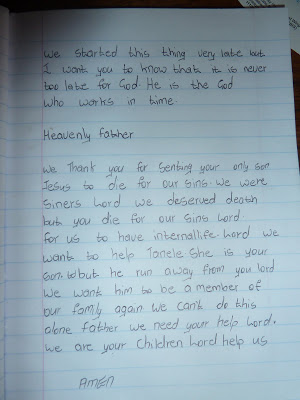 We started this thing very late but
I want you to know that it is never
too late for God He is the God
who works in time.
Heavenly father
We Thank you for senting your only son
Jesus to die for our sins. We were
siners Lord we deserved death
but you die for our sins Lord
for us to have internallife. Lord we
want to help Tanele. She is your
son. but he run away from you lord
we want him to be a member of
our family again we can't do this
alone father we need your help Lord.
we are your children Lord help us
AMEN